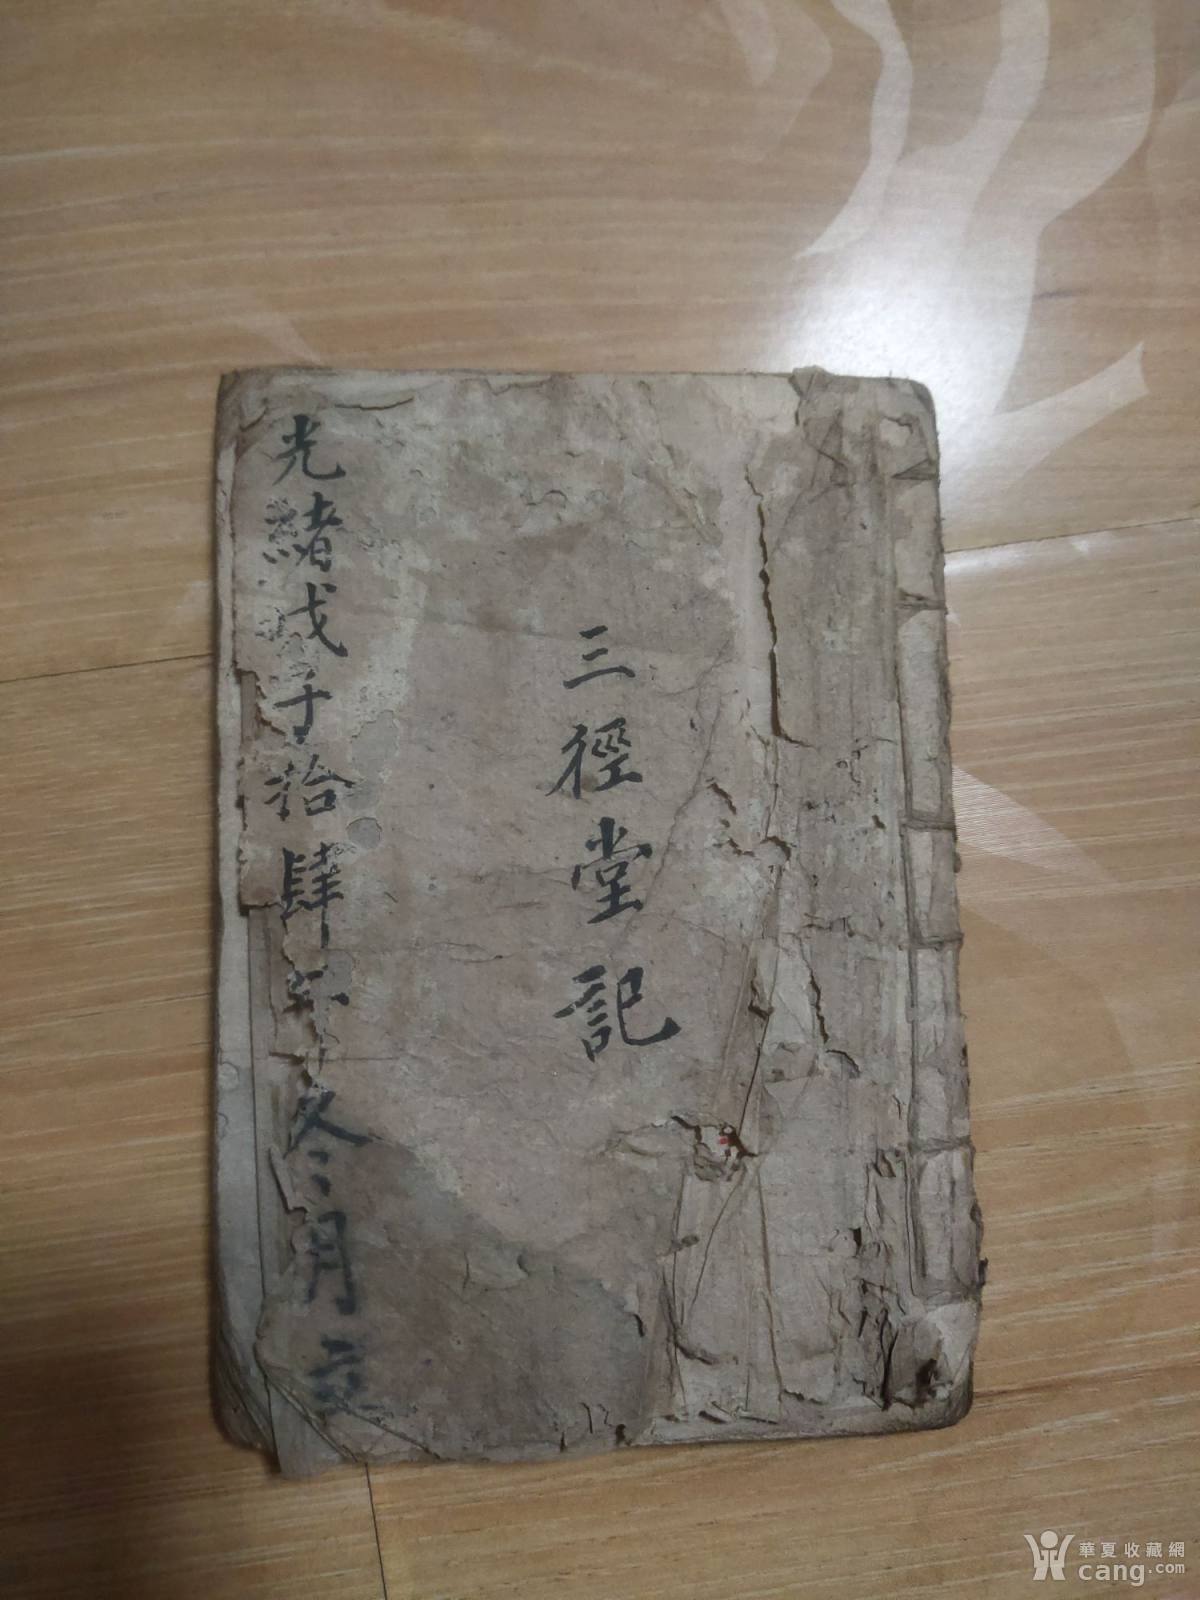 三徑堂記
光緒戊子拾肆年冬月立
華夏收藏網
cang.com